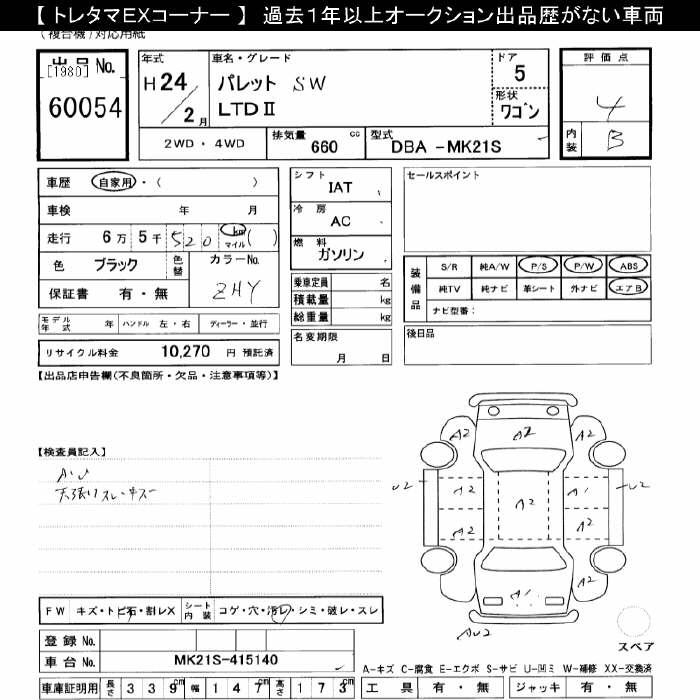 【 トレタマEXコーナー 】 過去1年以上オークション出品歴がない車両
(複合機)対応用紙
出品 No.
[1980]
60054
年式
H 24 / 2 月
車名・グレード
パレット SW
LTDⅡ
ドア
5
形状
ワゴン
評価点
4
内装
B
2WD・4WD
排気量 660 cc
型式 DBA -MK21S
車歴 自家用・( )
車検 年 月
走行 6 万 5 千 5 2 0 km マイル ( )
色 ブラック 色替 カラーNo.
ZHY
保証書 有・無
モデル年式 年 ハンドル 左・右 ディーラー・並行
リサイクル料金 10,270 円 預託済
シフト
IAT
冷房
AC
燃料
ガソリン
乗車定員 名
積載量 kg
総重量 kg
名変期限
月 日
セールスポイント
装備品
S/R 純A/W P/S P/W ABS
純TV 純ナビ 革シート 外ナビ エアB
ナビ型番:
後日品
【出品店申告欄(不良箇所・欠品・注意事項等)】
【検査員記入】
A・U
天張りスレ・キズ
A2 A2 A2
U2 A2 A2 A1 U2
A2 A2
A1
AU2
スペア
FW キズ・トビ石・割レX シート内装 コゲ・穴・汚レ・シミ・破レ・スレ
登録 No.
車台 No. MK21S-415140
A-キズ C-腐食 E-エクボ S-サビ U-凹ミ W-補修 XX-交換済
車庫証明用 長さ 3 3 9 cm 幅 1 4 7 cm 高さ 1 7 3 cm
工具 有・無 ジャッキ 有・無